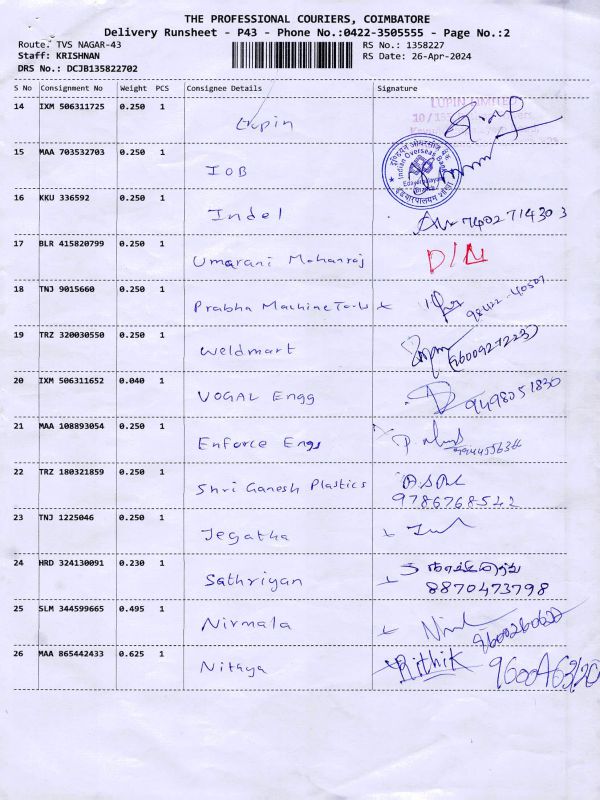 THE PROFESSIONAL COURIERS, COIMBATORE
Delivery Runsheet - P43 - Phone No.:0422-3505555 - Page No.:2
Route. TVS NAGAR-43 RS No.: 1358227
Staff: KRISHNAN RS Date: 26-Apr-2024
DRS No.: DCJB135822702
S No Consignment No Weight PCS Consignee Details Signature
14 IXM 506311725 0.250 1 Lupin LUPIN LIMITED
15 MAA 703532703 0.250 1 IOB Indian Overseas Bank
16 KKU 336592 0.250 1 Indel 7402714303
17 BLR 415820799 0.250 1 Umarani Mohanraj D/L
18 TNJ 9015660 0.250 1 Prabha Machine Tools
19 TRZ 320030550 0.250 1 Weldmart
20 IXM 506311652 0.040 1 VOGAL Engg 9498051830
21 MAA 108893054 0.250 1 Enforce Engs
22 TRZ 180321859 0.250 1 Shri Ganesh Plastics
9786768542
23 TNJ 1225046 0.250 1 Jegatha
24 HRD 324130091 0.230 1 Sathriyan
8870473798
25 SLM 344599665 0.495 1 Nirmala
26 MAA 865442433 0.625 1 Nitaya Rithik